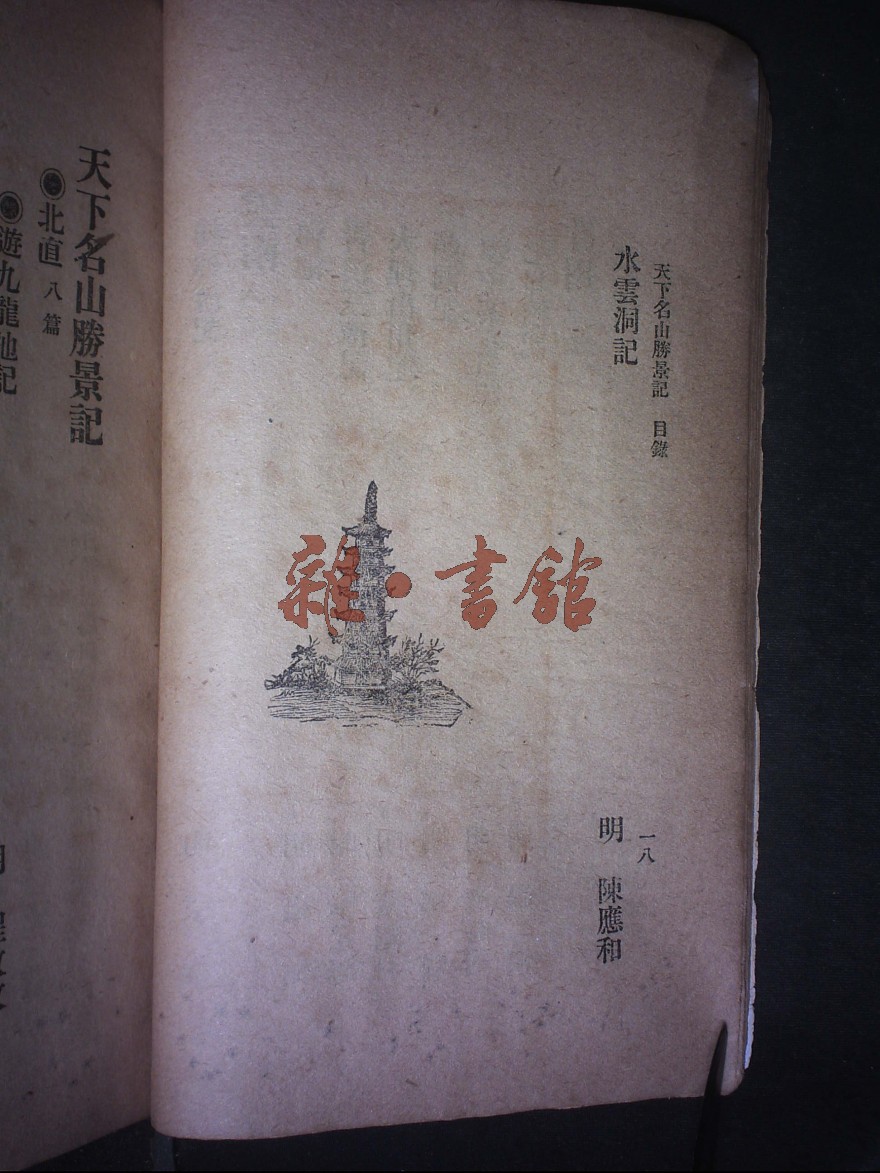 天下名山勝景記 目錄
一八
水雲洞記
明 陳應和
雜·書館
天下名山勝景記
◉北直 八篇
◉遊九龍池記
明 程敏政